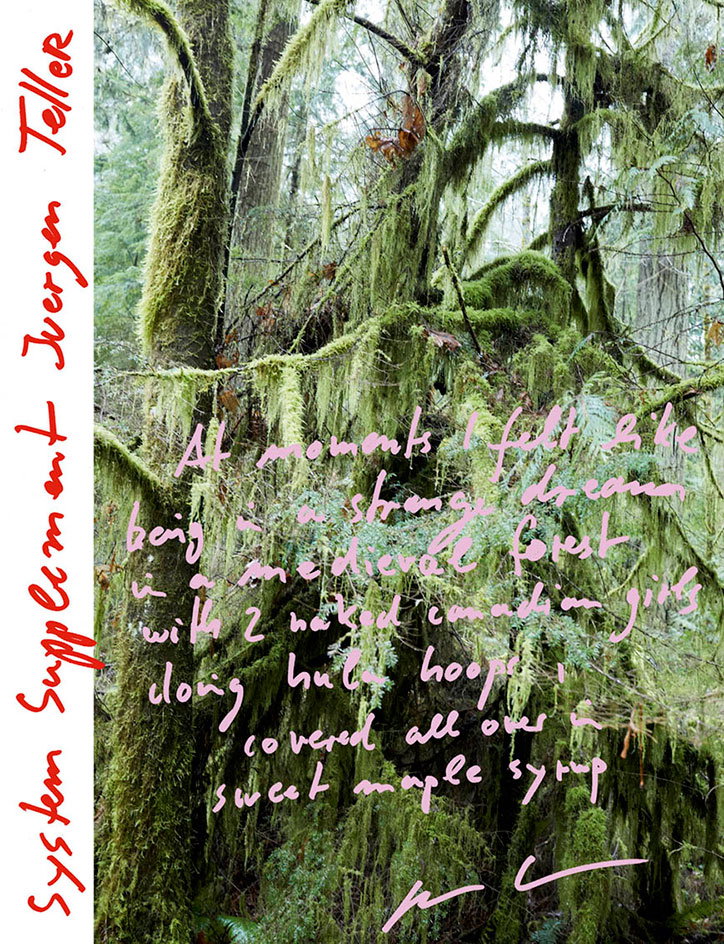 System Supplement Juergen Teller
At moments I felt like
being in a strange dream
in a medieval forest
with 2 naked canadian girls
doing hula hoops,
covered all over in
sweet maple syrup